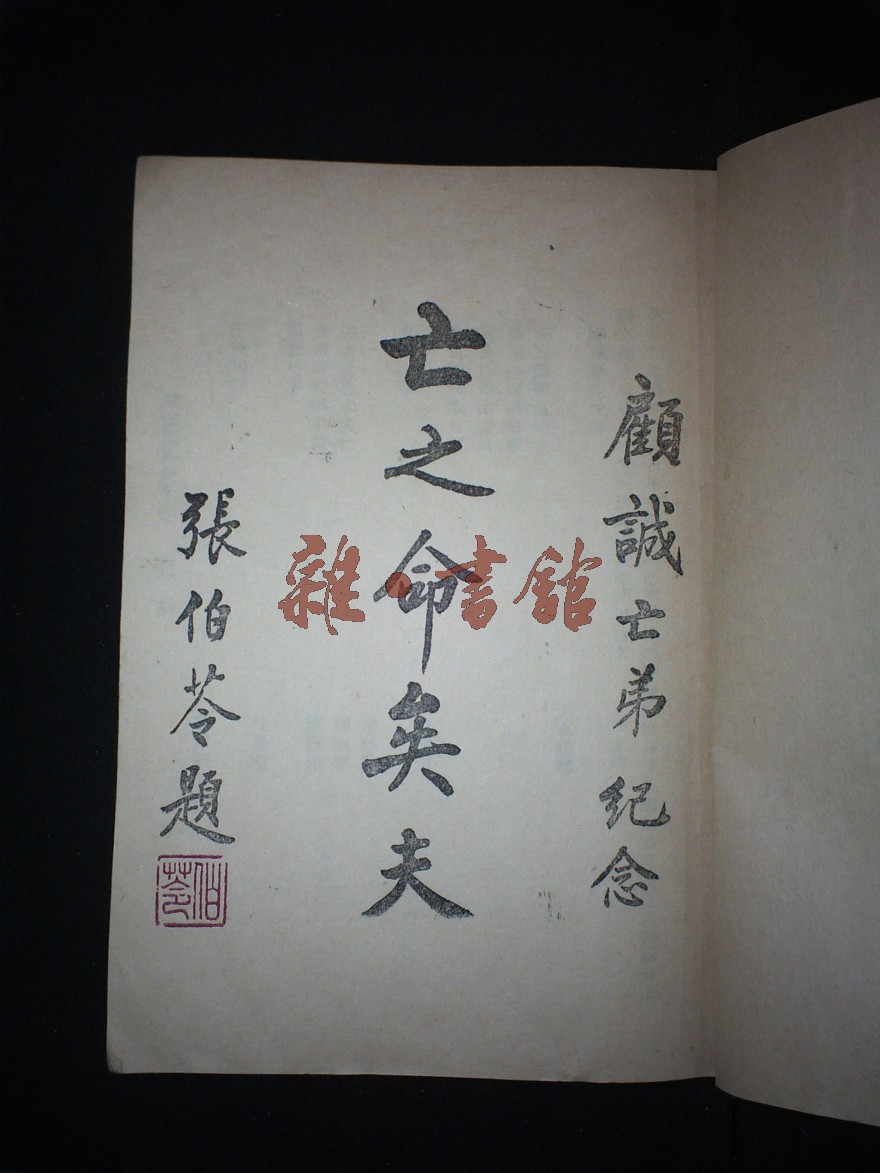 顧誠亡弟紀念
亡之命矣夫
張伯苓題
伯苓
雜·書館